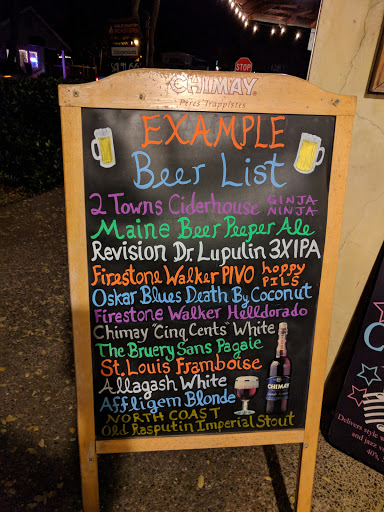 CHIMAY
Pères Trappistes
EXAMPLE
Beer List
2 Towns Ciderhouse GINJA NINJA
Maine Beer Peeper Ale
Revision Dr. Lupulin 3XIPA
Firestone Walker PIVO hoppy PILS
Oskar Blues Death By Coconut
Firestone Walker Helldorado
Chimay "Cinq Cents" White
The Bruery Sans Pagaie
St. Louis Framboise
Allagash White
Affligem Blonde
NORTH COAST
Old Rasputin Imperial Stout
CHIMAY
STOP